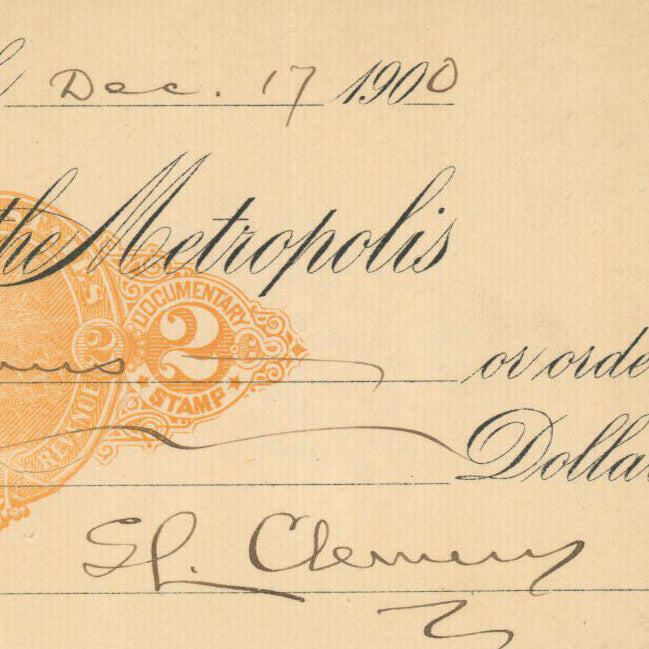 Dec. 17 1900
the Metropolis
DOCUMENTARY
2 2
STAMP
or orde
Dolla
SL. Clemens